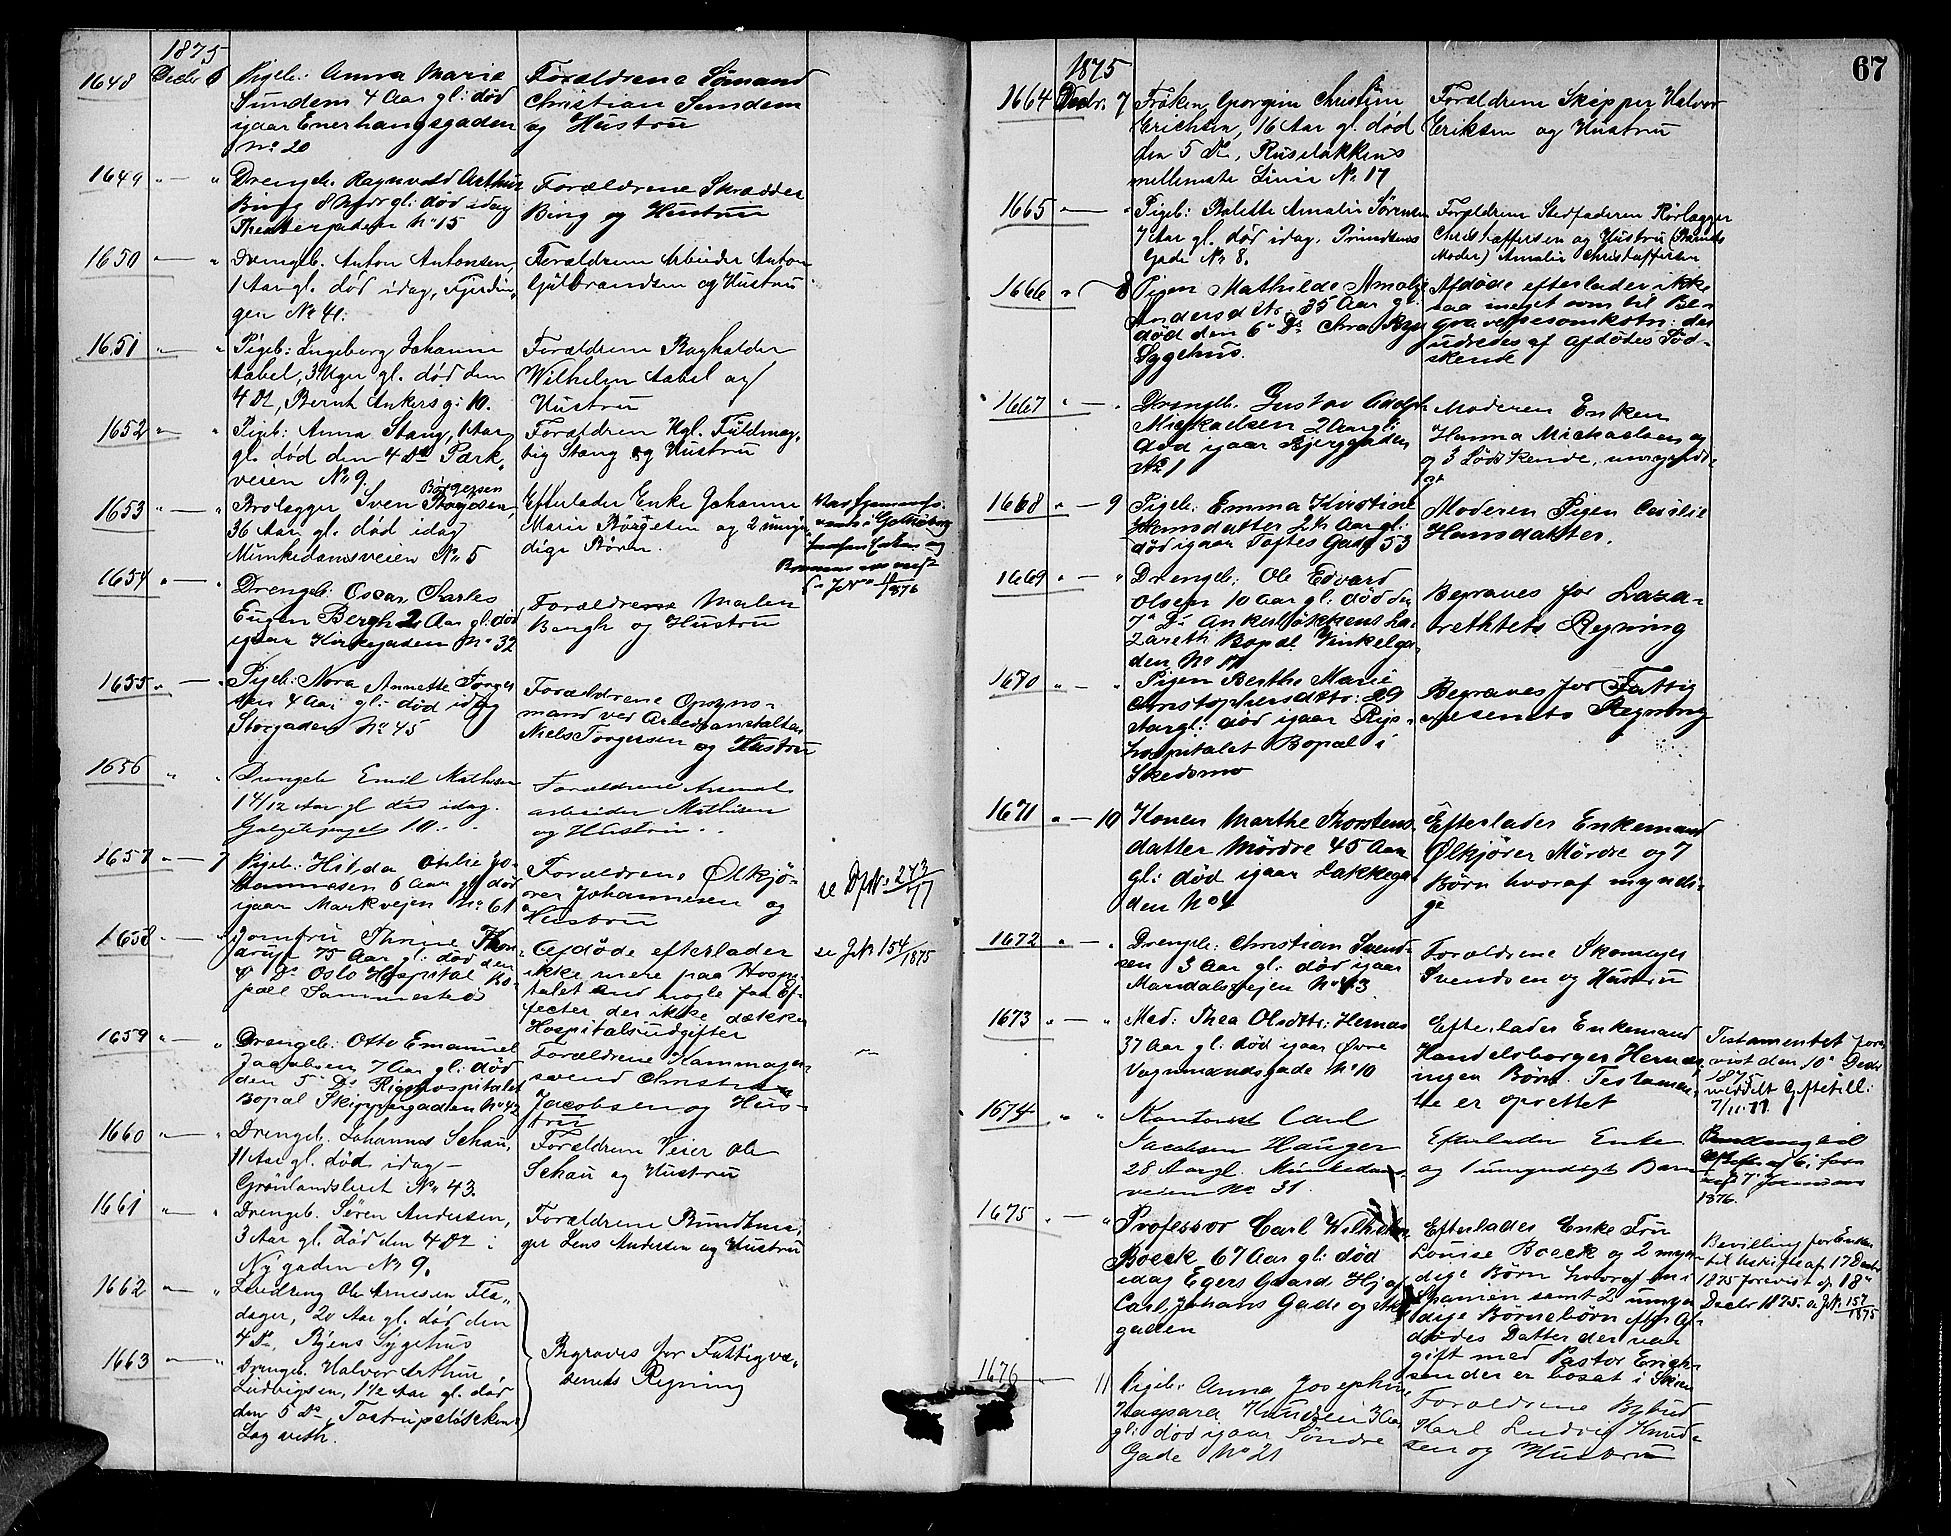 1875
1648 Decbr 6 Pigeb: Anna Marie
Sundem 4 Aar gl: død
igaar Enerhaugsgaden
No 20
Forældrene Sømand
Christian Sundem
og Hustru
1649 " — " Drengeb. Ragnvald Arthur
Bing 8 Aar gl: død idag
Theatergaden No 15
Forældrene Skrædder
Bing og Hustru
1650 " — " Drengeb. Anton Antonsen,
1 Aar gl. død idag, Fjerdin-
gen No 41.
Forældrene Arbeider Anton
Gulbrandsen og Hustru
1651 " — " Pigeb: Ingeborg Johanne
Aabel, 3 Uger gl. død den
4 Ds, Bernt Ankersg: 10.
Forældrene Bogholder
Wilhelm Aabel og
Hustru
1652 " " Pigeb: Anna Stang, 1 Aar
gl. død den 4 Ds Park-
veien No 9.
Forældrene Kgl. Fuldmæg-
tig Stang og Hustru
1653 " — " Brolægger Sven Børgesen,
36 Aar gl. død idag
Munkedamsveien No 5
Efterlader Enke Johanne
Marie Børgesen og 2 umyn-
dige Børn.
1876
1654 " — " Drengeb: Oscar Charles
Eugen Bergh 2 Aar gl: død
igaar Kirkegaden No 32
Forældrene Maler
Bergh og Hustru
1655 " — " Pigeb: Nora Annette Torger
sen 4 Aar gl: død idag
Storgaden No 45
Forældrene Opsyns-
mand ved Arbeidsanstalten
Niels Torgersen og Hustru
1656 " " Drengeb Emil Mathisen
1 4/12 Aar gl død idag.
10
Forældrene Arsenal
arbeider Mathisen
og Hustru
1657 " — 7 Pigeb: Hilda Otilie Jo-
hannesen 6 Aar gl: død
igaar Markvejen No 61
Forældrene Ølkjø-
rer Johannesen og
Hustru
se DpNo 273/77
1658 " — " Jomfru Thrine
75 Aar gl: død den
4 Ds Oslo Hospital Bo-
pæl Sammesteds
Afdøde efterlader
ikke mere paa Hospi-
talet end nogle faa Ef-
fecter der ikke dækker
Hospitalsudgifter
se JNo 154/1875
1659 " — " Drengeb: Otto Emanuel
Jacobsen 7 Aar gl: død
den 5 Ds Rigshospitalet
Bopæl Skippergaden No 42
Forældrene Kammager-
svend Christian
Jacobsen og Hus-
tru
1660 " — " Drengeb. Johannes Schau,
11 Aar gl. død idag
Grønlandsleret No 43.
Forældrene Veier Ole
Schau og Hustru
1661 " — " Drengeb. Søren Andersen,
3 Aar gl. død den 4 Ds i
Nygaden No 9.
Forældrene Bundtma-
ger Jens Andersen og Hustru
1662 " — " Lærdreng Ole Arnesen Fla-
dager, 20 Aar gl. død den
4 Ds, Byens Sygehus
1663 " — " Drengeb. Halvor Arthur
Ludvigsen, 1½ Aar gl. død
den 5 Ds, Tostrupsløkkens
Lazareth.
Begraves for Fattigvæ-
senets Regning
67
1875
1664 Decbr. 7 Frøken Georgine Christine
Erichsen, 16 Aar gl. død
den 5 Ds, Ruseløkkens
mellemste Linie No 17
Forældrene Skipper Halvor
Eriksen og Hustru
1665 " — " Pigeb: Bolette Amalie Sørensen
7 Aar gl. død idag, Brinckens
Gade No 8.
Forældrene Stedfaderen Rørlægger
Christoffersen og Hustru (Barnets
Moder) Amalie Christoffersen
1666 " — 8 Pigen Mathilde Amalie
Andersdtr. 35 Aar gl:
død den 6 Ds Chra Byes
Sygehus.
Afdøde efterlader ikke
saa meget som til Be-
gravelsesomkostn: der
udredes af Afdødes Sød-
skende
1667 " — " Drengeb. Gustav Adolph
Michaelsen 2 Aar gl:
død igaar Bjerggaden
No 1
Moderen Enken
Hanna Michaelsen og
og 3 Sødskende, umyndi-
ge
1668 " — 9 Pigeb: Emma Kirstine
Hansdatter 2½ Aar gl:
død igaar Toftes Gade 53
Moderen Pigen Cecilie
Hansdatter.
1669 " — " Drengeb: Ole Edvard
Olsen 10 Aar gl: død den
7 Ds Ankerløkkens La-
zareth Bopæl Vinkelga-
den No 17
Begraves for Laza-
rethtets Regning
1670 " — " Pigen Berthe Marie
Christophersdtr: 29
Aar gl: død igaar Rigs-
hospitalet Bopæl i
Skedsmo
Begraves for Fattig
væsenets Regning
1671 " — 10 Konen Marthe Thorstens
datter Mørdre 45 Aar
gl: død igaar Lakkega-
den No 4
Efterlader Enkemand
Ølkjører Mørdre og 7
Børn hvoraf myndi-
ge
1672 " — " Drengeb: Christian Svend-
sen 3 Aar gl: død igaar
Maridalsvejen No 43
Forældrene Skomager
Svendsen og Hustru
1673 " — " Mad: Thea Olsdtr: Hernæs
37 Aar gl: død igaar Øvre
Vognmandsgade No 10
Efterlader Enkemand
Handelsborger Hernæs
ingen Børn. Testamen-
te er oprettet
Testamentet fore
vist den 10 Decbr
1875
meddelt Skiftetill:
7/11.77
1674 " " Kontorist Carl
Jacobsen Hauger
28 Aar gl. Munkedams-
veien No 31.
Efterlader Enke
og 1 umyndigt Barn
1876.
1675 " — " Professor Carl Wilhelm
Boeck 67 Aar gl: død
idag Egers Gaard Hj: af
Carl Johans Gade og Aker
gaden
Efterlader Enke Fru
Louise Boeck og 2 myn
dige Børn hvoraf en i
Spanien samt 2 umyn
dige Børnebørn efter Af-
dødes Datter der var
gift med Pastor Erich-
sen der er bosat i Skien
Bevilling for Enken
til Uskifte af 17 Decbr
1875 forevist d. 18
Decbr 1875. se JNo 157/1875
1676 " — 11 Pigeb: Anna Josephine
Kaspara Knudsen 3 Aar
gl: død igaar Søndre
Gade No 21
Forældrene Bybud
Karl Ludvig Knud-
sen og Hustru